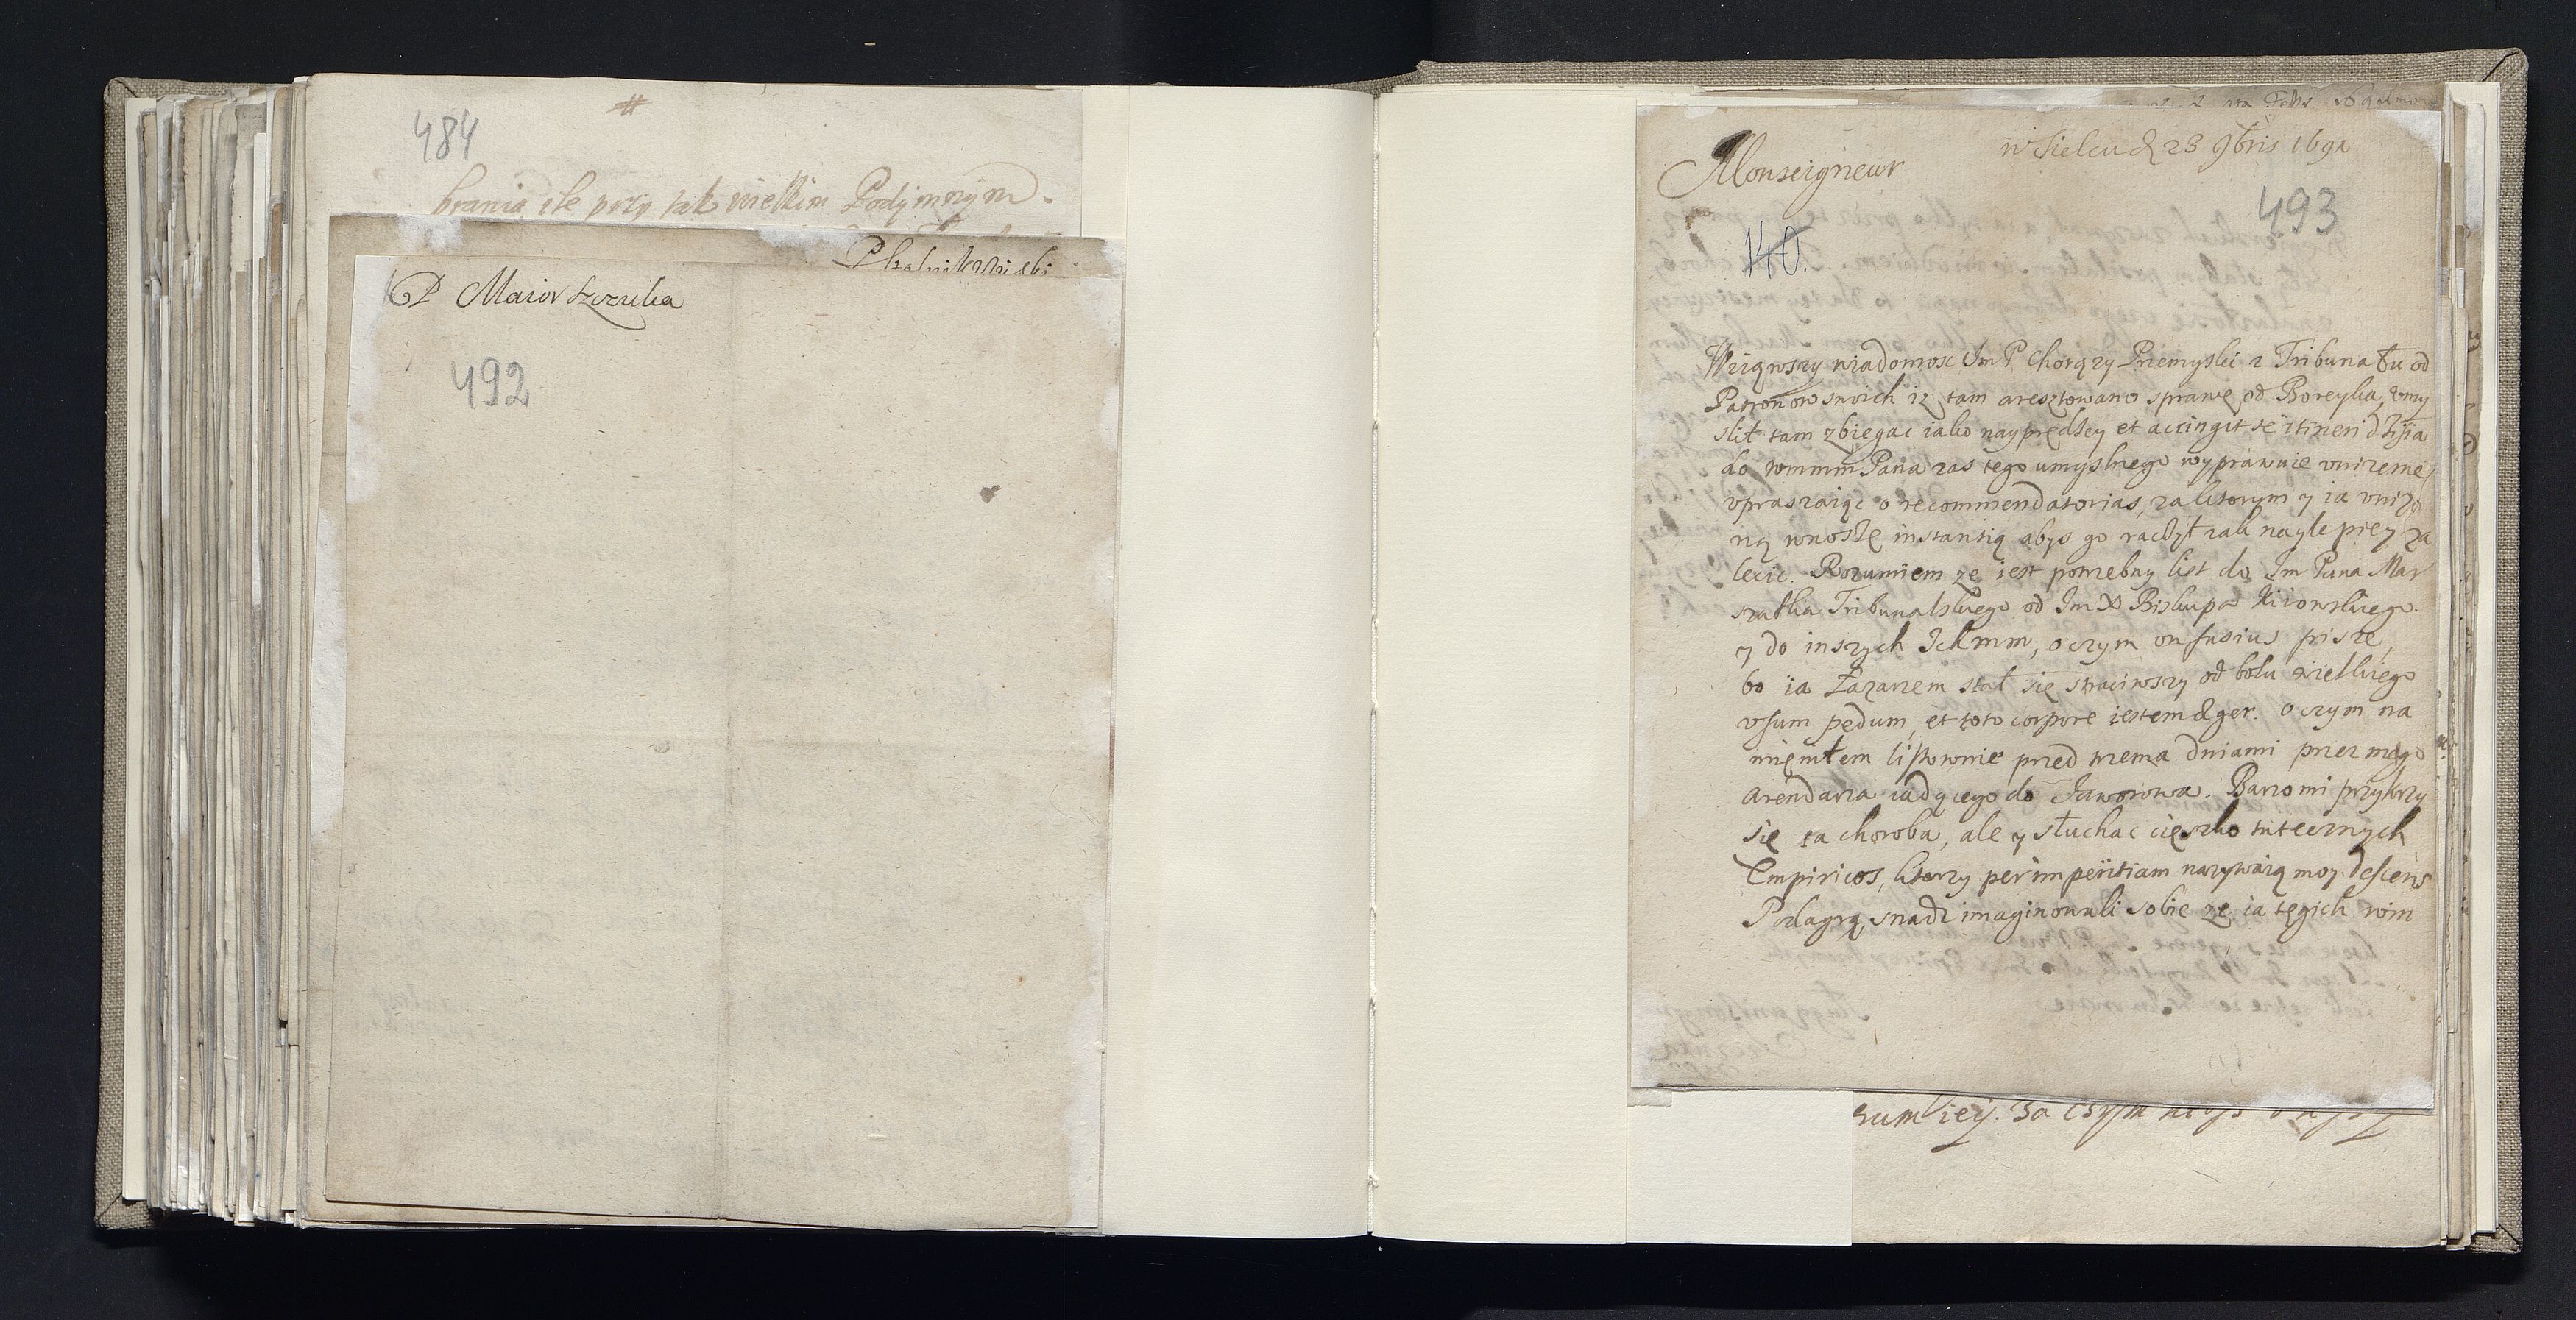 #
484
brania ile przy tak wielkim Podymnym.
P Maior Szczuka
492
w Sielcu d 23 9bris 1691
Monseigneur
493
140.
Wziąwszy wiadomosc Jm P. Chorązy Przemyslki z Tribunału od
Patronow swoich iz tam aresztowano sprawę od Boreyka, vmy
slił tam zbiegac iako nayprędzey et accingit se itineri dzisia
do wmmm Pana zas tego umyslnego wyprawuie unizenie
vpraszaiąc o recommendatorias, za ktorym y ia vnizo
ną wnoszę instantią abys go raczył iak naylepiey za
lecic. Rozumiem ze iest potrzebny list do Jm Pana Mar
szałka Tribunalskiego od Jm X Biskupa Kiiowskiego.
y do inszych Ichmm, o czym on fusius pisze,
bo ia Łazarzem stał się straciwszy od bolu wielkiego
vsum pedum, et toto corpore iestem æger. O czym na
mięniłem listownie przed trzema dniami przez mego
Arendarza iadącego do Jaworowa. Barzo mi przykrzy
się ta choroba, ale y słuchac cięszko tutecznych
Empiricos, ktorzy per imperitiam nazywaią moy descens
Podagrą, snadz imaginowali sobie ze ia tęgich win
rum iey. Za czym